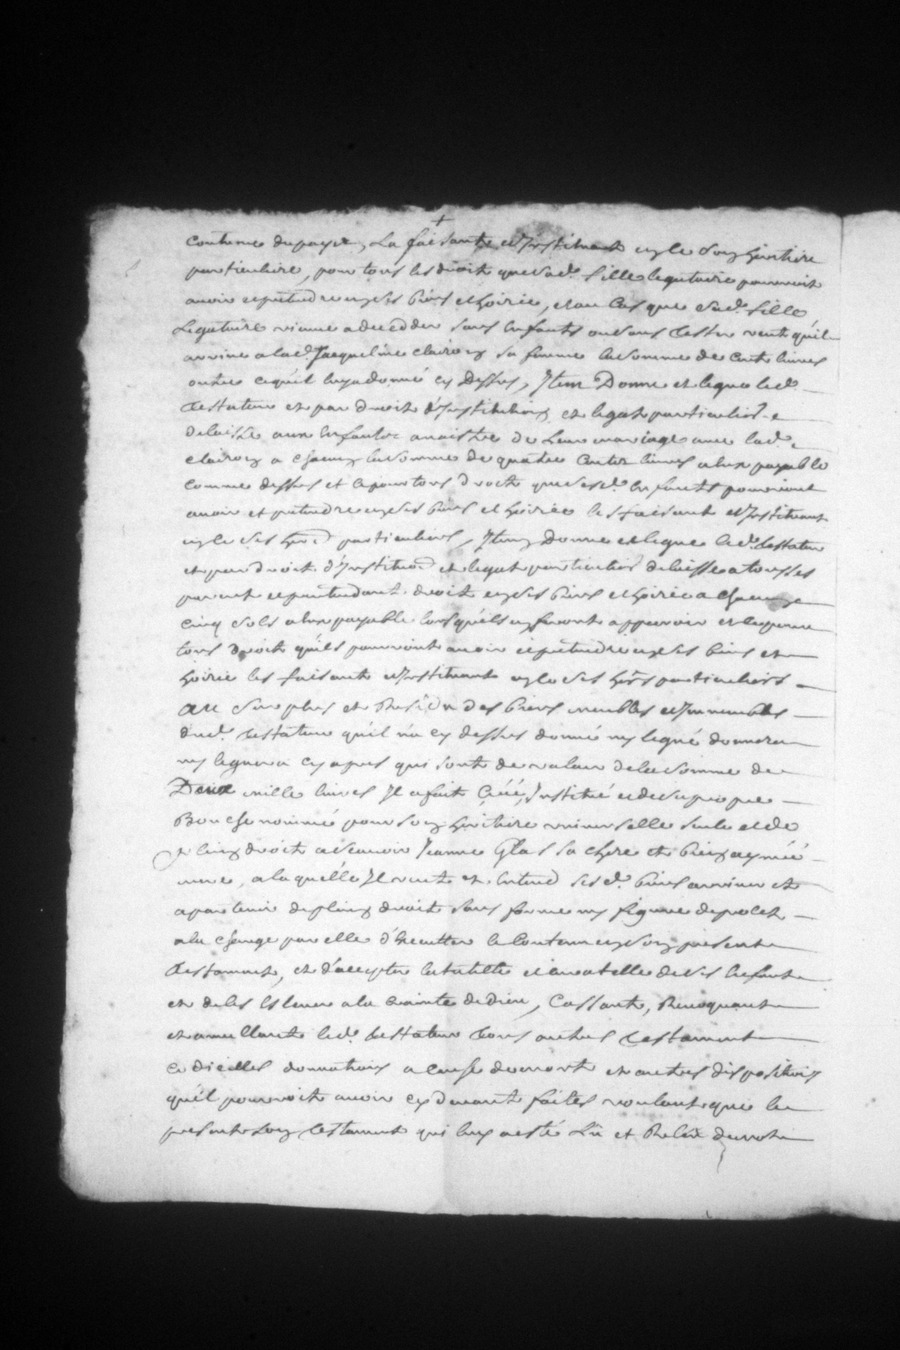 coutume du payis, La faisante et Instituant en le Son heritiere
particuliere, pour tous les droit que sad. fille legataire pourroit
avoir et pretendre en ses biens et hoirie, et au Cas que sad. fille
Legataire vienne a decedder sans Enfants ou sans tester veut qu'il
arrive a lad. Jacqueline clairoy sa femme la somme de Cent livres
outre ce qu'il luy a donné cy Dessus, Item Donne et legue led.
testateur et par droit d'Institution et legat particulier
delaisse aux Enfants a naistre de Leur mariage avec lad.
clairoy a chacun la somme de quatre Cents livres a eux payable
comme dessus et ce pour tous droits que sesd. Enfants pourroient
avoir et pretendre en ses biens et hoirie les faisant et Instituant
en ce ses her. particuliers, Item Donne et legue led. testateur
et par droit d'Institution et legat particulier delaisse a tous ses
parent et pretendant droit en ses biens et hoirie a chacun
cinq sols a eux payable lors qu'ils en feront apparoir et ce pour
tous droit qu'ils pourroint avoir et pretendre en ses biens et
hoirie les faisant et Instituant en ce ses hers particuliers
au surplus et Residu des biens meubles et Immeubles
dud. testateur qu'il n'a cy dessus donné ny legué donnera
ny leguera cy apres qui sont de valeur de la somme de
Deux mille livres Il a fait Créé, Institué et de sa propre
Bouche nommé pour son heritiere universelle seule et de
plein droit a scavoir Jeanne Glas sa chere et bien aymée
mere, a laquelle Il veut et entend sesd. biens arriver et
apartenir de plein droit sans forme ny figure de procet
a la charge par elle d'executter le Contenu en son present
testament, et d'accepter la tutelle et curatelle de ses Enfants
et de les Eslever a la crainte de Dieu, Cassant, Revoquant
et annullant led. testateur tous autres testament
codicilles donnations a cause de mort et autres dispositions
qu'il pourroit avoir cy devant faites voulant que le
present son testament qui luy a esté Lû et Relû de mot